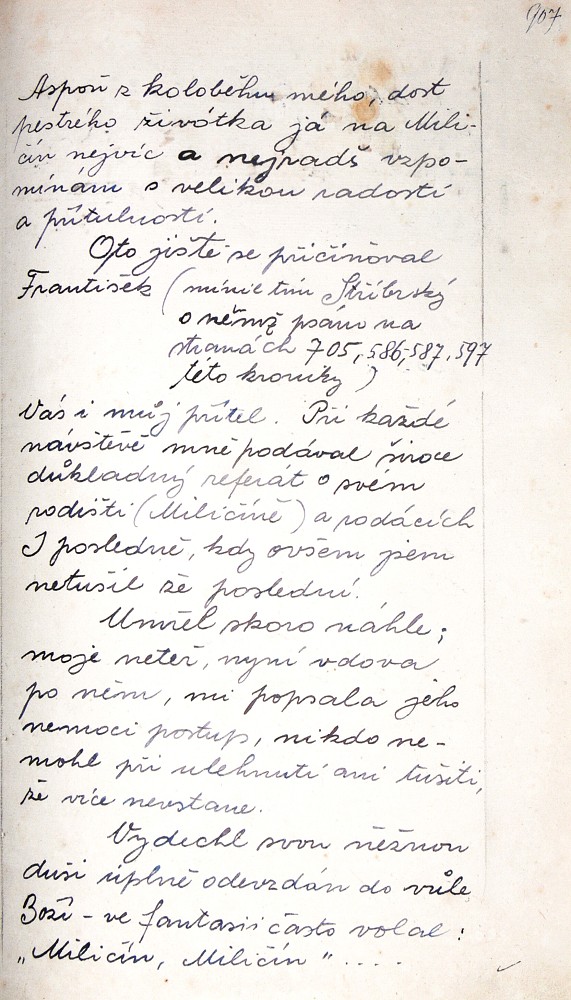 907
Aspoň z koloběhu mého, dost
pestrého živótka já na Mili-
čín nejvíc a nejradš vzpo-
mínám s velikou radostí
a přítulností.
Oto jistě se přičiňoval
František (míním tím Stříbrský
o němž psáno na
stranách 705, 586, 587, 597
této kroniky)
Váš i můj přítel. Při každé
návštěvě mně podával široce
důkladný referát o svém
rodišti (Miličíně) a rodácích
I posledně, kdy ovšem jsem
netušil že poslední.
Umřel skoro náhle;
moje neteř, nyní vdova
po něm, mi popsala jeho
nemoci postup, nikdo ne-
mohl při ulehnutí ani tušiti,
že více nevstane.
Vydechl svou něžnou
duši úplně odevzdán do vůle
Boží - ve fantasii často volal:
„Miličín, Miličín" ....